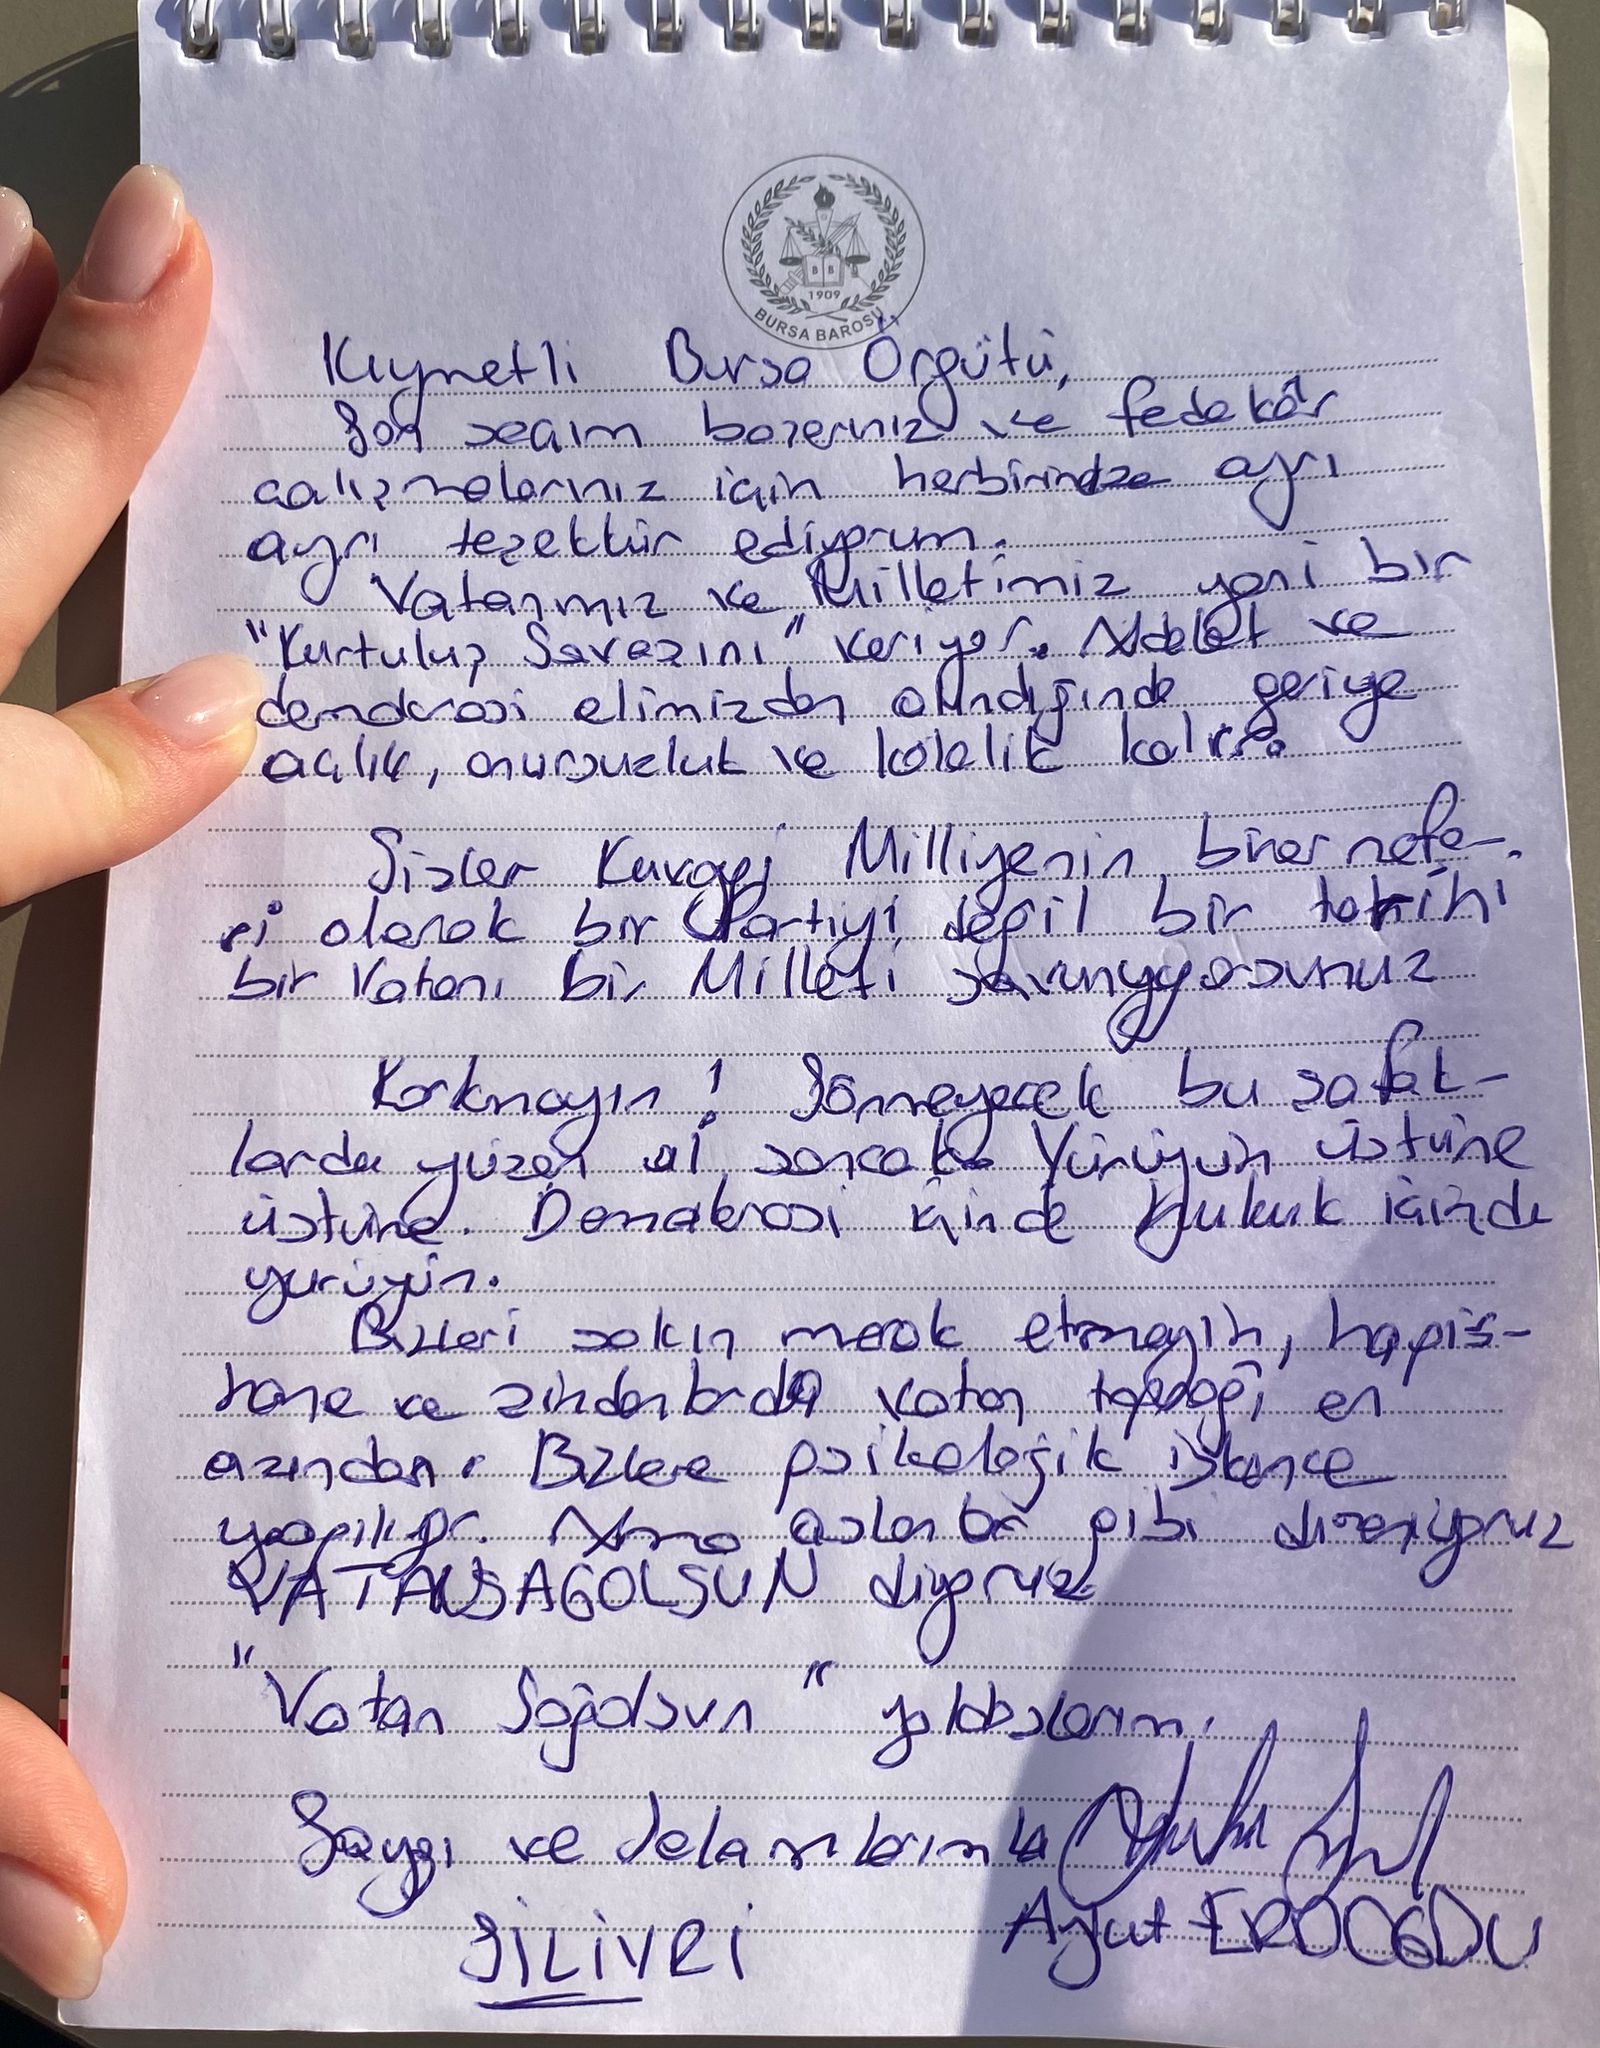 1909
BURSA BAROSU
Kıymetli Bursa Örgütü,
Son seçim başarınız ve fedakâr
çalışmalarınız için herbirinize ayrı
ayrı teşekkür ediyorum.
Vatanımız ve Milletimiz yeni bir
"Kurtuluş Savaşını" veriyor. Adalet ve
demokrasi elimizden alındığında geriye
açlık, onursuzluk ve kölelik kalır.
Sizler Kuvayi Milliyenin birer nefe-
ri olarak bir Partiyi değil bir tarihi
bir Vatanı bir Milleti savunuyorsunuz
Korkmayın! Sönmeyecek bu şafak-
larda yüzen al sancak. Yürüyün üstüne
üstüne. Demokrasi içinde Hukuk içinde
yürüyün.
Bizleri sakın merak etmeyin, hapis-
hane ve zindanlarda vatan toprağı en
azından. Bizlere psikolojik işkence
yapılıyor. Ama aslanlar gibi direniyoruz
VATANSAĞOLSUN diyoruz.
"Vatan Sağolsun" yoldaşlarım.
Saygı ve selamlarımla
Aykut ERDOĞDU
SİLİVRİ